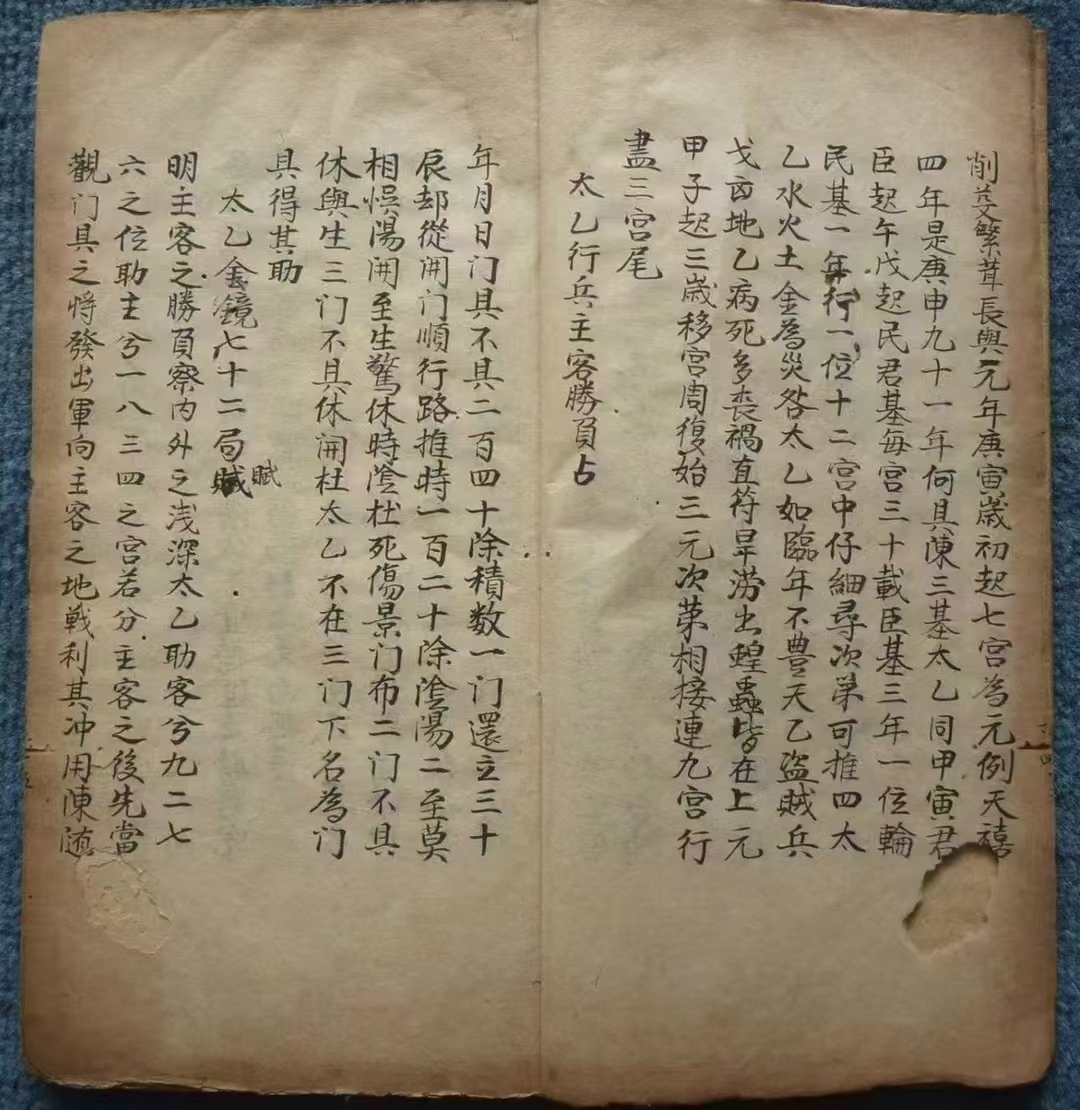 削芟繁茸長興元年庚寅歲初起七宮為元例天禧
四年是庚申九十一年何具陳三基太乙同甲寅君
臣起午戊起民君基每宮三十載臣基三年一位輪
民基一年行一位十二宮中仔細尋次第可推四太
乙水火土金為災咎太乙如臨年不豊天乙盜賊兵
戈凶地乙病死多喪禍直符旱澇出蝗蟲皆在上元
甲子起三歲移宮周復始三元次第相接連九宮行
盡三宮尾
太乙行兵主客勝負占
年月日门具不具二百四十除積数一门還立三十
辰却從開门順行路推時一百二十除陰陽二至莫
相悞陽開至生驚休時陰杜死傷景门布二门不具
休與生三门不具休開杜太乙不在三门下名為门
具得其助
太乙金鏡七十二局賦
賦
明主客之勝負察内外之浅深太乙助客兮九二七
六之位助主兮一八三四之宮若分主客之後先當
觀门具之將發出軍向主客之地戰利其冲用陳随